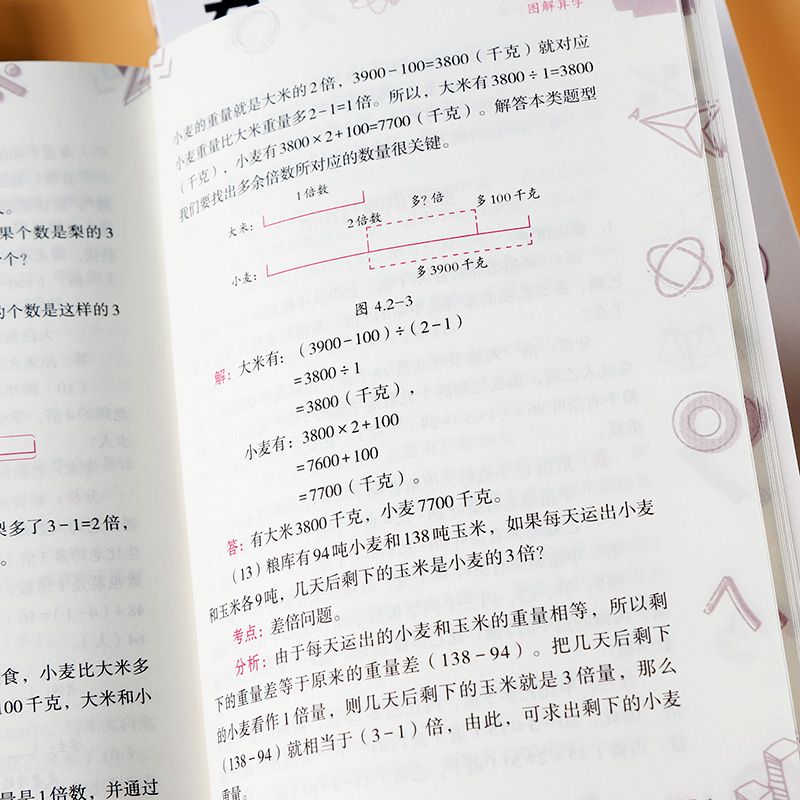 果个数是梨的3
个?
的个数是这样的3
梨多了3-1=2倍,
食,小麦比大米多
100千克,大米和小
量是1倍数,并通过
图解算学
小麦的重量就是大米的2倍,3900-100=3800(千克)就对应
小麦重量比大米重量多2-1=1倍。所以,大米有3800÷1=3800
(千克),小麦有3800×2+100=7700(千克)。解答本类题型
我们要找出多余倍数所对应的数量很关键。
1倍数
大米:
2倍数
多?倍
多100千克
小麦:
多3900千克
图 4.2-3
解:大米有:(3900-100)÷(2-1)
=3800÷1
=3800(千克),
小麦有:3800×2+100
=7600+100
=7700(千克)。
答:有大米3800千克,小麦7700千克。
(13)粮库有94吨小麦和138吨玉米,如果每天运出小麦
和玉米各9吨,几天后剩下的玉米是小麦的3倍?
考点:差倍问题。
分析:由于每天运出的小麦和玉米的重量相等,所以剩
下的重量差等于原来的重量差(138-94)。把几天后剩下
的小麦看作1倍量,则几天后剩下的玉米就是3倍量,那么
(138-94)就相当于(3-1)倍,由此,可求出剩下的小麦
重量。